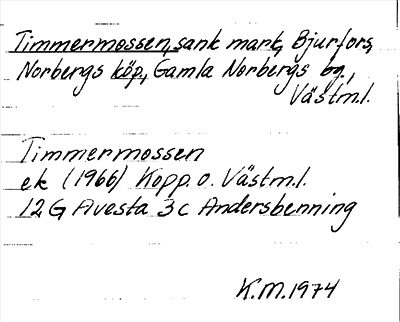 Timmermossen, sank mark, Bjurfors,
Norbergs köp, Gamla Norbergs bg.,
Västm.l.
Timmermossen
ek (1966) Kopp. o. Västm.l.
12 G Avesta 3 c Andersbenning
K.M. 1974